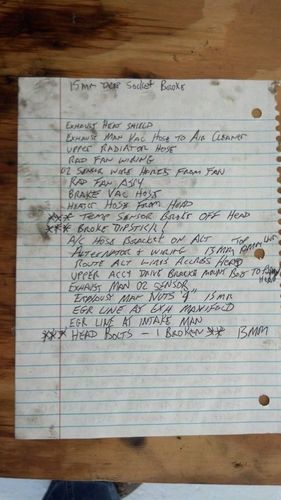 15mm deep socket broke
Exhaust heat shield
Exhaust man vac hose to air cleaner
Upper radiator hose
Rad fan wiring
O2 sensor wire harness from fan
Rad fan assy
Brake vac hose
Heater hose from head
*** Temp sensor broke off head
*** Broke dipstick!
A/C hose bracket on alt
Alternator & wiring 13mm
Route alt wires across head
Upper accy drive bracket bolt to head
Exhaust man O2 sensor
Exhaust man nuts "9" 15mm
EGR line at exh manifold
EGR line at intake man
*** Head bolts - 1 broken ** 13mm